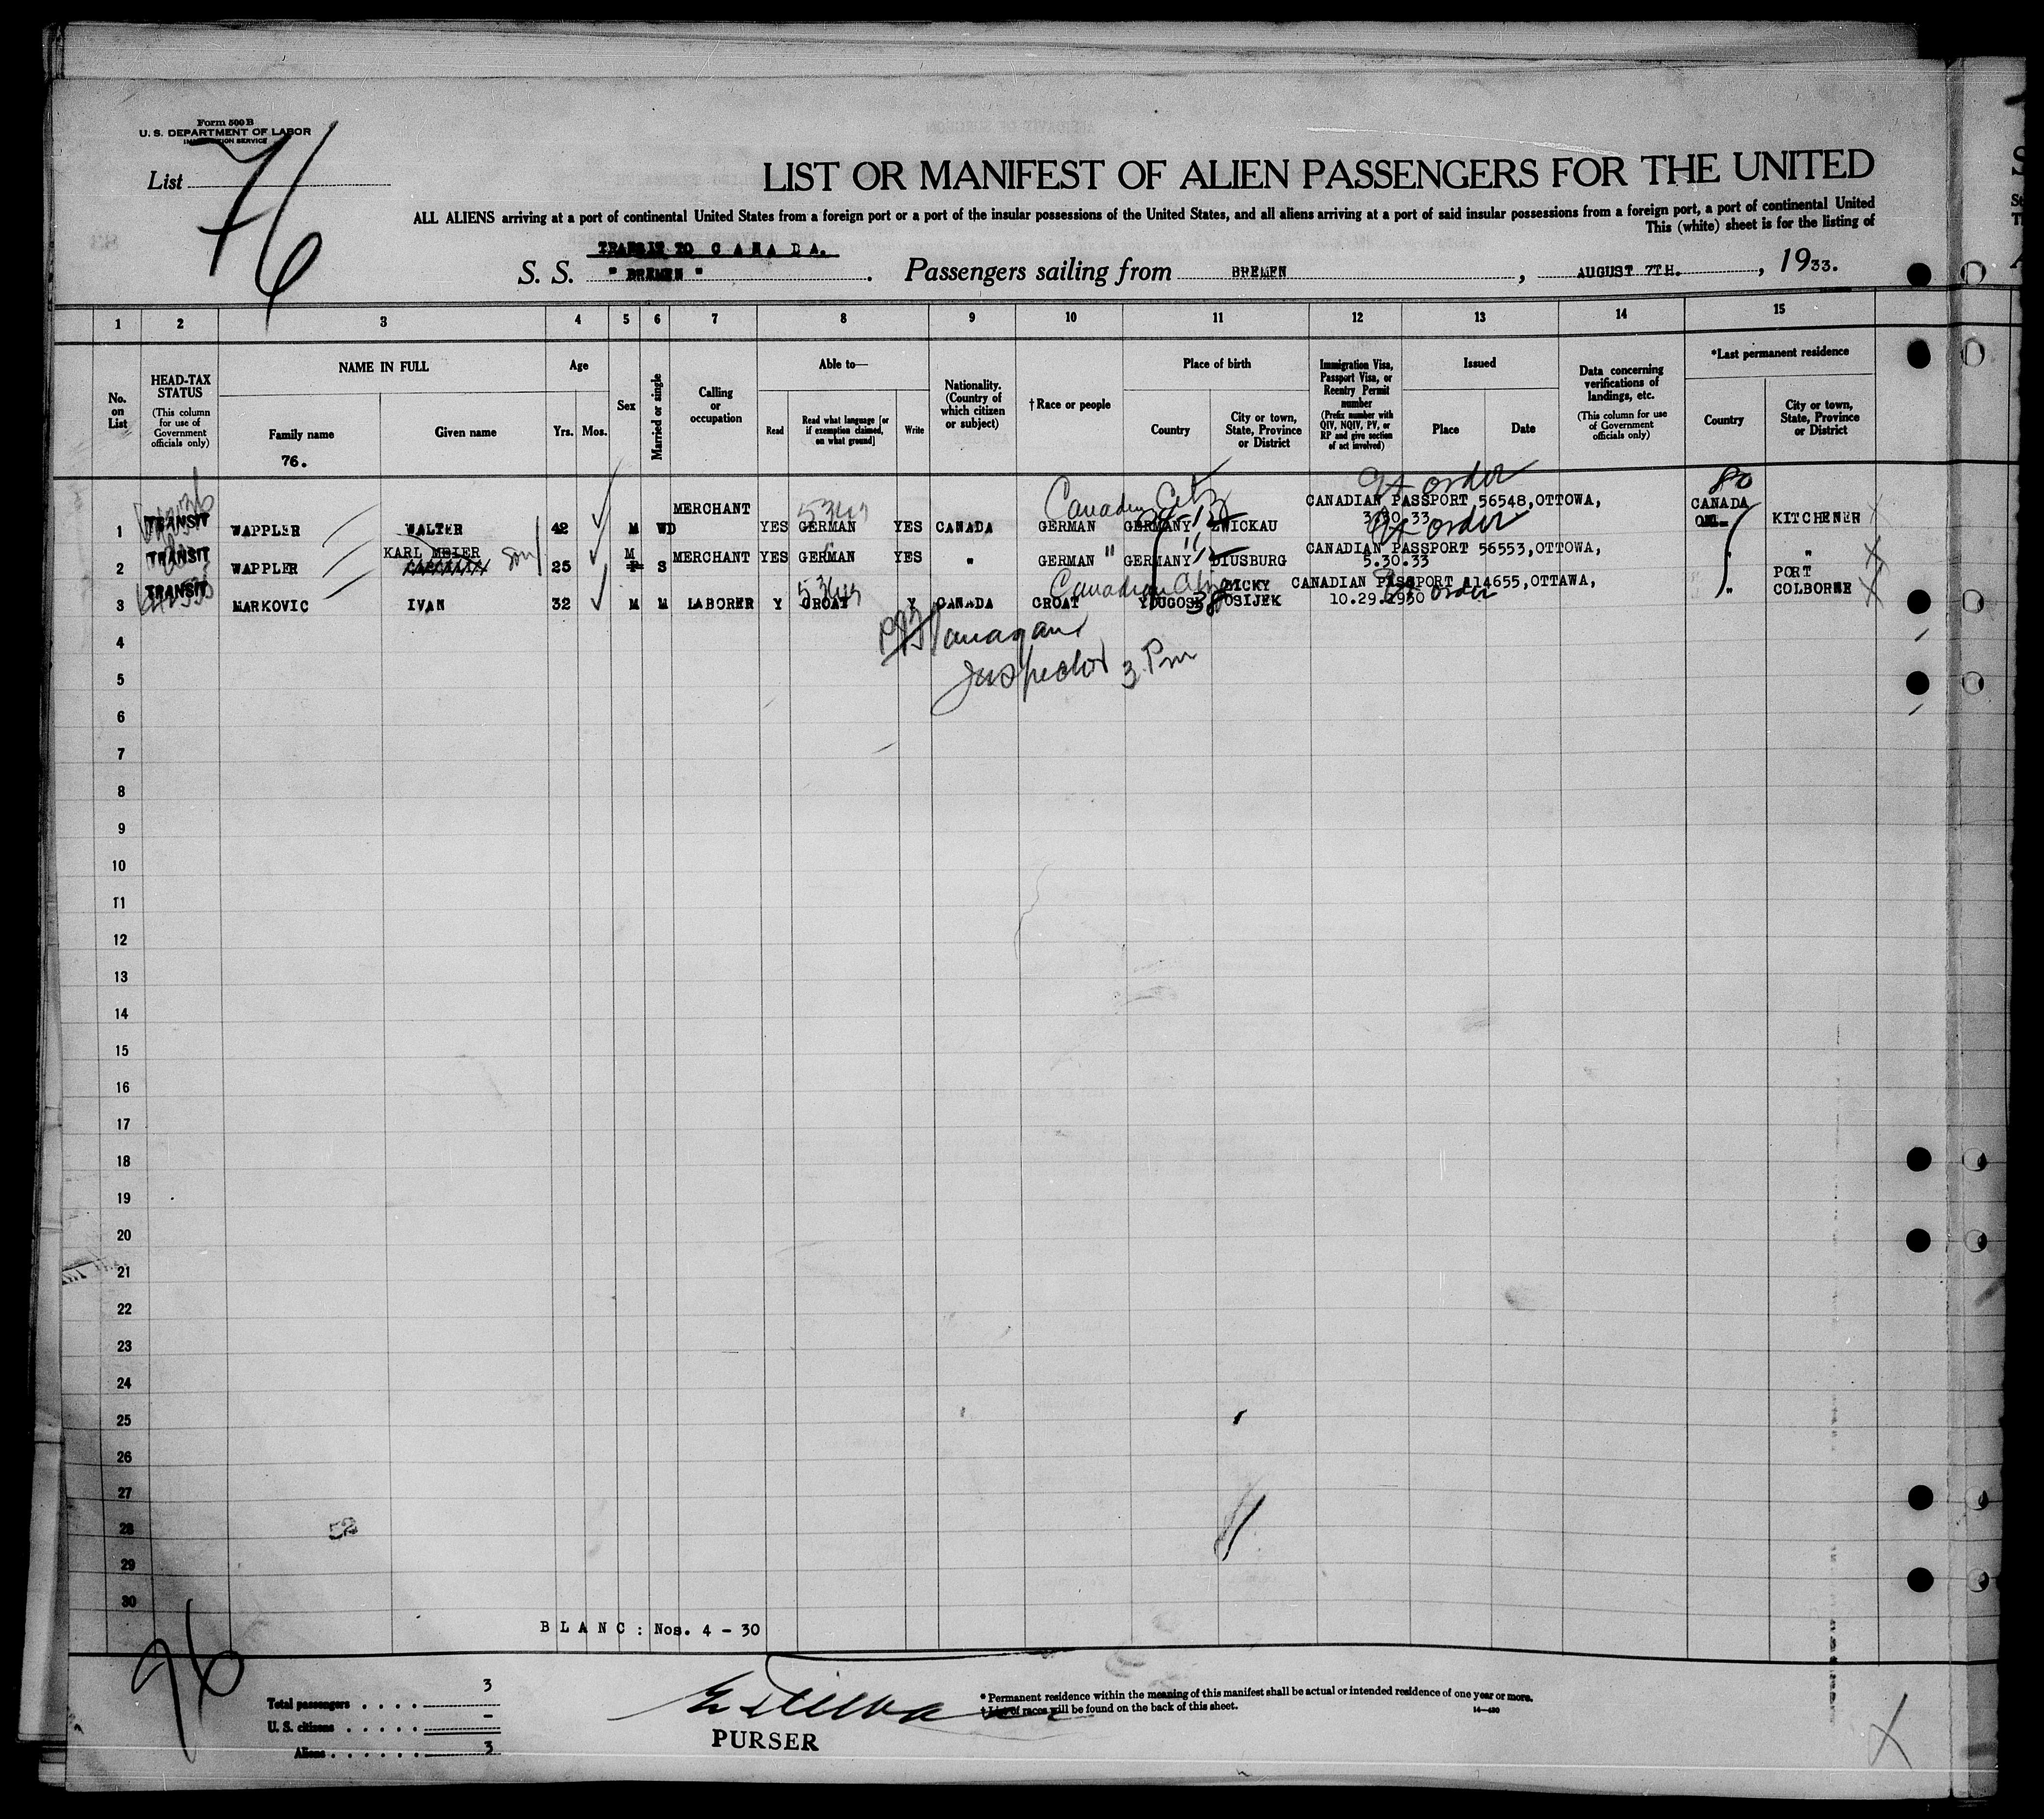 Form 500 B
U. S. DEPARTMENT OF LABOR
IMMIGRATION SERVICE
List 76
LIST OR MANIFEST OF ALIEN PASSENGERS FOR THE UNITED
ALL ALIENS arriving at a port of continental United States from a foreign port or a port of the insular possessions of the United States, and all aliens arriving at a port of said insular possessions from a foreign port, a port of continental United
This (white) sheet is for the listing of
TRANSIT TO C A N A D A.
S. S. " BREMEN " . Passengers sailing from BREMEN , AUGUST 7TH. , 1933.
1 2 3 4 5 6 7 8 9 10 11 12 13 14 15
No. on List
HEAD-TAX STATUS (This column for use of Government officials only)
NAME IN FULL
Family name
Given name
76.
Age
Yrs. Mos.
Sex
Married or single
Calling or occupation
Able to—
Read
Read what language [or if exemption claimed, on what ground]
Write
Nationality. (Country of which citizen or subject)
†Race or people
Place of birth
Country
City or town, State, Province or District
Immigration Visa, Passport Visa, or Reentry Permit number (Prefix number with QIV, NQIV, PV, or RP and give section of act involved)
Issued
Place
Date
Data concerning verifications of landings, etc. (This column for use of Government officials only)
*Last permanent residence
Country
City or town, State, Province or District
1 TRANSIT WAPPLER WALTER 42 M WD MERCHANT YES GERMAN YES CANADA GERMAN GERMANY ZWICKAU CANADIAN PASSPORT 56548,OTTOWA, CANADA KITCHENER
2 TRANSIT WAPPLER KARL MEIER son 25 M S MERCHANT YES GERMAN YES " GERMAN " GERMANY DIUSBURG CANADIAN PASSPORT 56553,OTTOWA, 5.30.33 "
3 TRANSIT MARKOVIC IVAN 32 M M LABORER Y CROAT Y CANADA CROAT YOUGOSK OSIJEK CANADIAN PASSPORT 114655,OTTAWA, 10.29.1930 " PORT COLBORNE
4
Inspector 3 Pm
5
6
7
8
9
10
11
12
13
14
15
16
17
18
19
20
21
22
23
24
25
26
27
28
52
29
30
B L A N C : Nos. 4 - 30
76
Total passengers . . . . 3
U. S. citizens . . . . . -
Aliens . . . . . . 3
PURSER
* Permanent residence within the meaning of this manifest shall be actual or intended residence of one year or more.
† List of races will be found on the back of this sheet.
14—480